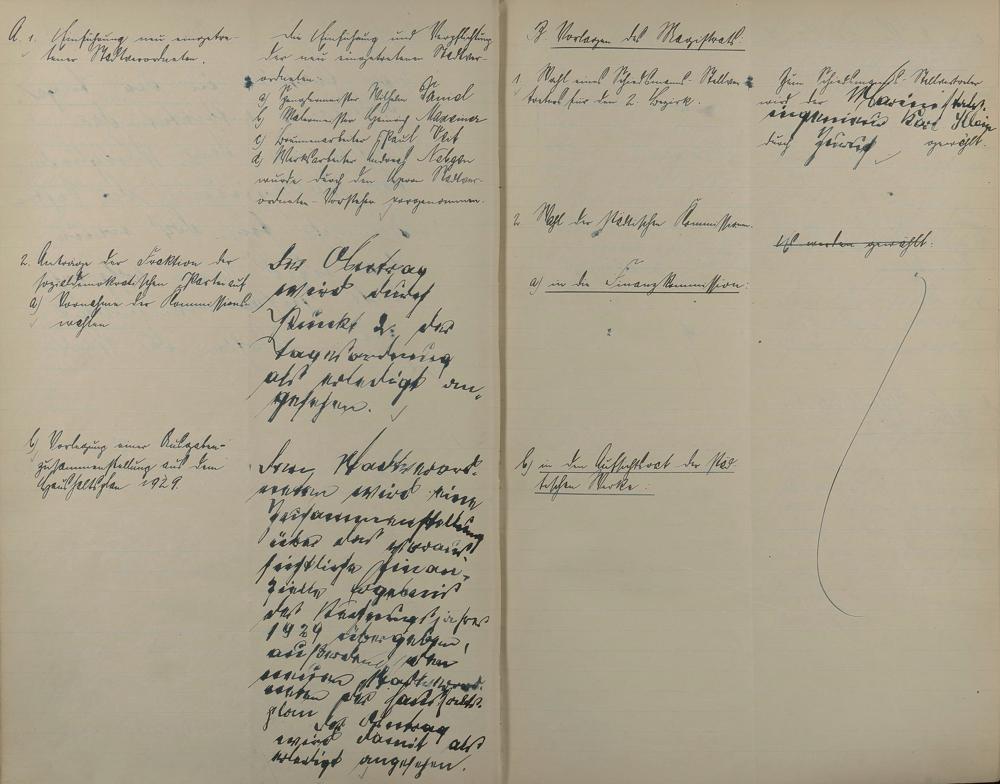 A. 1. Einführung neu eingetre-
tener Stadtverordneten.
Die Einführung und Verpflichtung
der neu eingetretenen Stadtver-
ordneten:
a) Wilhelm
b) Malermeister Heinrich
c) Brunnenarbeiter Paul Veit
d) Werksarbeiter Andreas
wurde durch den Herrn Stadtver-
ordneten-Vorsteher vorgenommen.
2. Antrage der Fraktion der
sozialdemokratischen Partei auf
a) Vornahme der Kommissions
wahlen
Der Obertrag
wird durch
Punkt 2. der
Tagesordnung
als erledigt an-
gesehen.
b) Vorlegung einer Ausgaben-
zusammenstellung aus dem
Haushaltsplan 1929.
Den Stadtverord-
neten wird eine
Zusammenstellung
über das voraus
sichtliche finan-
zielle Ergebnis
des Rechnungsjahres
1929 übergeben,
außerdem den
neuen Stadtverord-
neten der Haushalts-
plan. Der Antrag
wird damit als
erledigt angesehen.
B Vorlagen des Magistrats.
1. Wahl eines Schiedsmanns-Stellver-
treters für den 2. Bezirk.
Zum Schiedsmanns-Stellvertreter
wird der
Karl Klein
durch Zuruf gewählt.
2. Wahl der städtischen Kommissionen.
Es werden gewählt:
a) in die Finanzkommission:
b) in den Aufsichtsrat der Städ-
tischen Werke: